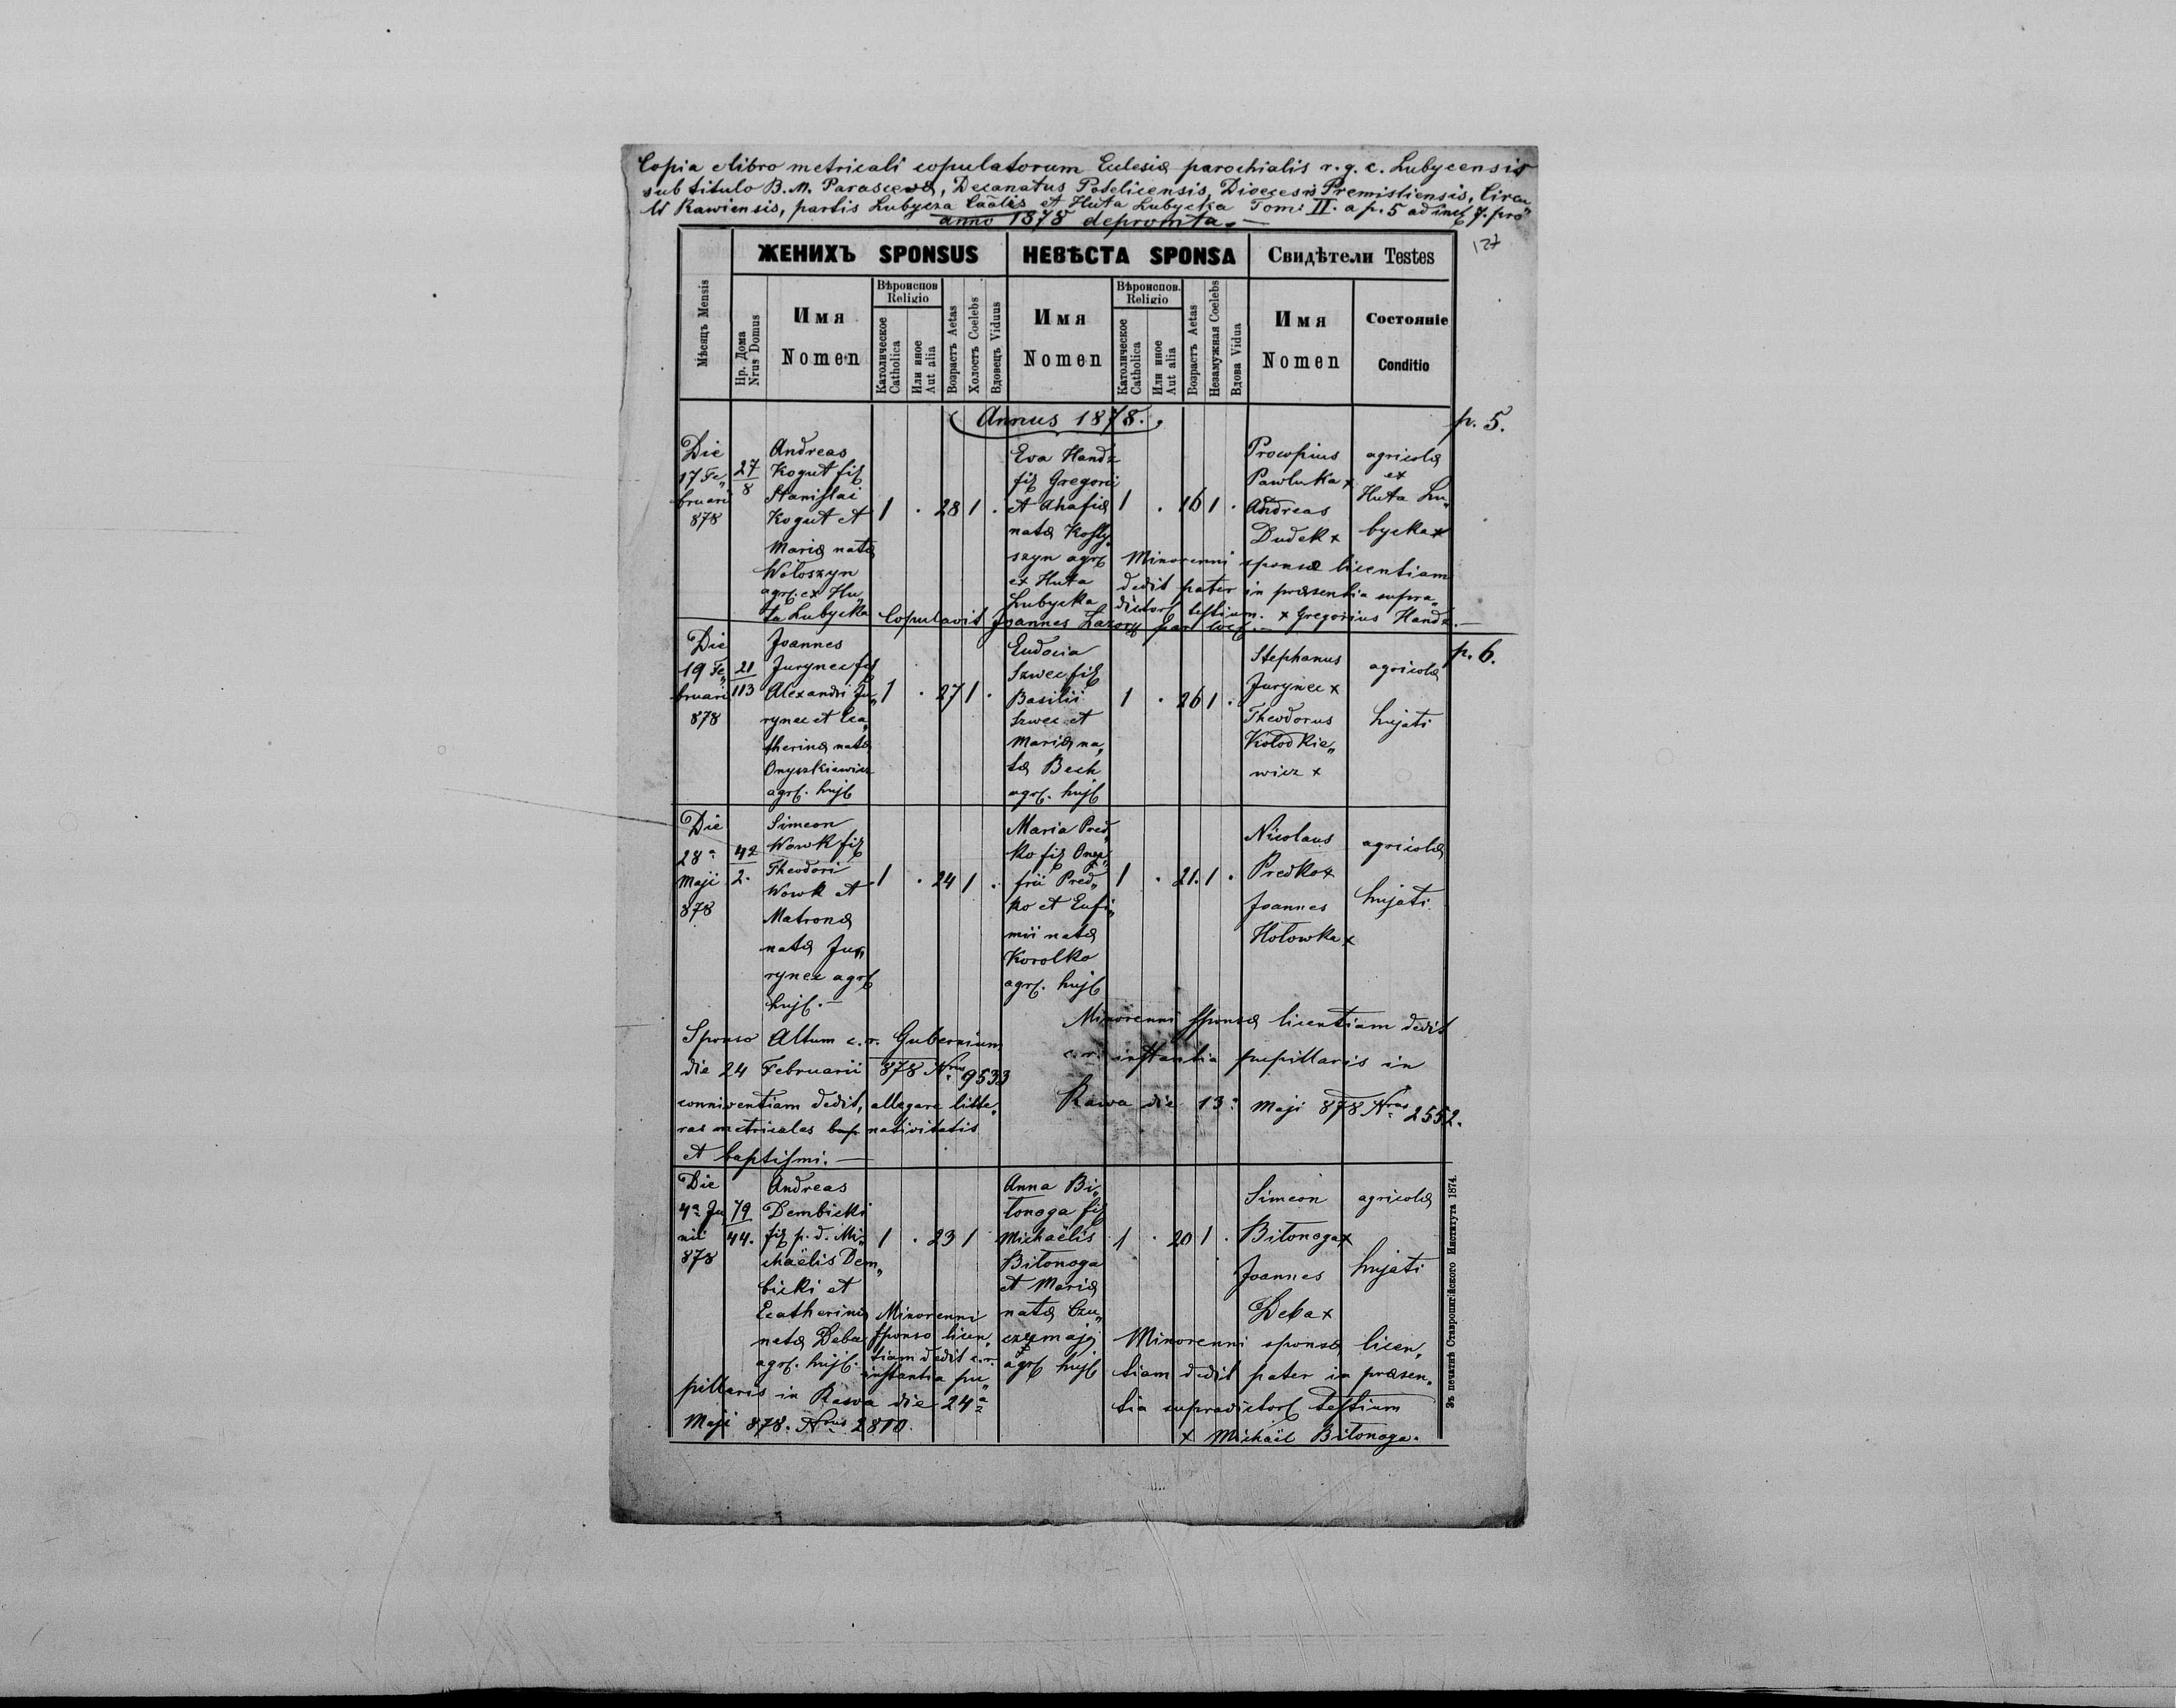 Copia e libro metricali copulatorum Ecclesiæ parochialis r. g. c. Lubycensis
sub titulo B. M. Parascevæ, Decanatus Potelicensis, Dioecesis Premisliensis, Circu„
li Rawiensis, partis Lubycza Caālis et Huta Lubycka Tom: II. a p. 5 ad incl 7. pro
anno 1878 depromta.
127
ЖЕНИХЪ SPONSUS
НЕВѢСТА SPONSA
Свидѣтели Testes
Мѣсяцъ Mensis
Нр. Дома
Nrus Domus
Имя
Nomen
Вѣроиспов
Religio
Католическое
Catholica
Или иное
Aut alia
Возрастъ Aetas
Холостъ Coelebs
Вдовецъ Viduus
Имя
Nomen
Вѣроиспов.
Religio
Католическое
Catholica
Или иное
Aut alia
Возрастъ Aetas
Незамужная Coelebs
Вдова Vidua
Имя
Nomen
Состояніе
Conditio
Annus 1878.
p. 5.
Die
17 Fe„
bruarii
878
27
8
Andreas
Kogut fil
Stanislai
Kogut et
Mariæ natæ
Wołoszyn
agrl. ex Hu„
ta Lubycka
1 . 28 1 .
Eva Handz
fil Gregorii
et Ahafiæ
natæ
szyn agrl
ex Huta
Lubycka
1 . 16 1 .
Procopius
Pawluka x
Andreas
Dudek x
agricolæ
ex
Huta Lu„
bycka x
Minorenni sponsæ licentiam
dedit pater in præsentia supra„
dictorl testium. x Gregorius Handz.
Copulavit Joannes Lazory par locl.
p. 6.
Die
19 Fe„
bruarii
878
21
113
Joannes
Jurynec fil
Alexandri Ju„
rynec et Eca„
therinæ natæ
Onyszkiewicz
agrl. hujl
1 . 27 1 .
Eudocia
Szwec fil
Basilii
Szwec et
Mariæ na„
tæ Bech
agrl. hujl
1 . 26 1 .
Stephanus
Jurynec x
Theodorus
Kołodkie„
wicz x
agricolæ
hujati
Die
28a
Maji
878
42
2.
Simeon
Wowk fil
Theodori
Wowk et
Matronæ
natæ Ju„
rynec agrl
hujl.
1 . 24 1 .
Maria Pred„
ko fil Onu„
frii Pred„
ko et Eufi„
mii natæ
Korolko
agrl. hujl
1 . 21. 1 .
Nicolaus
Predko x
Joannes
Hołowka x
agricolæ
hujati
Sponso Altum c. r. Gubernium
die 24 Februarii 878 Nrus 9533
conniventiam dedit, allegare litte„
ras metricales bap nativitatis
et baptismi.
Minorenni sponsæ licentiam dedit
c. r. instantia pupillaris in
Rawa die 13a Maji 878 Nrus 2552.
Die
4a Ju„
nii
878
79
44.
Andreas
Dembicki
fil p. d. Mi„
chaëlis Dem„
bicki et
Ecatherinæ
natæ Deba
agrl. hujl.
1 . 23 1
Anna Bi„
łonoga fil
Michaëlis
Biłonoga
et Mariæ
natæ Czu„
czmaj
agrl hujl
1 . 20 1 .
Simeon
Biłonoga x
Joannes
Deba x
agricolæ
hujati
Minorenni
sponso licen„
tiam dedit c. r.
instantia pu„
pillaris in Rawa die 24a
Maji 878. Nrus 2810.
Minorenni sponsæ licen„
tiam dedit pater in præsen„
tia supradictorl testium
x Michaël Biłonoga.
Зъ печатнѣ Ставропигійского Института 1874.